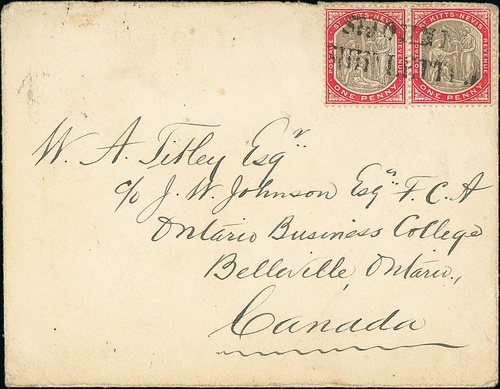 ST KITTS-NEVIS ST KITTS-NEVIS
POSTAGE REVENUE POSTAGE REVENUE
ONE PENNY ONE PENNY
W. A. Titley Esqr
c/o J. W. Johnson Esqr F. C. A
Ontario Business College
Belleville, Ontario.,
Canada